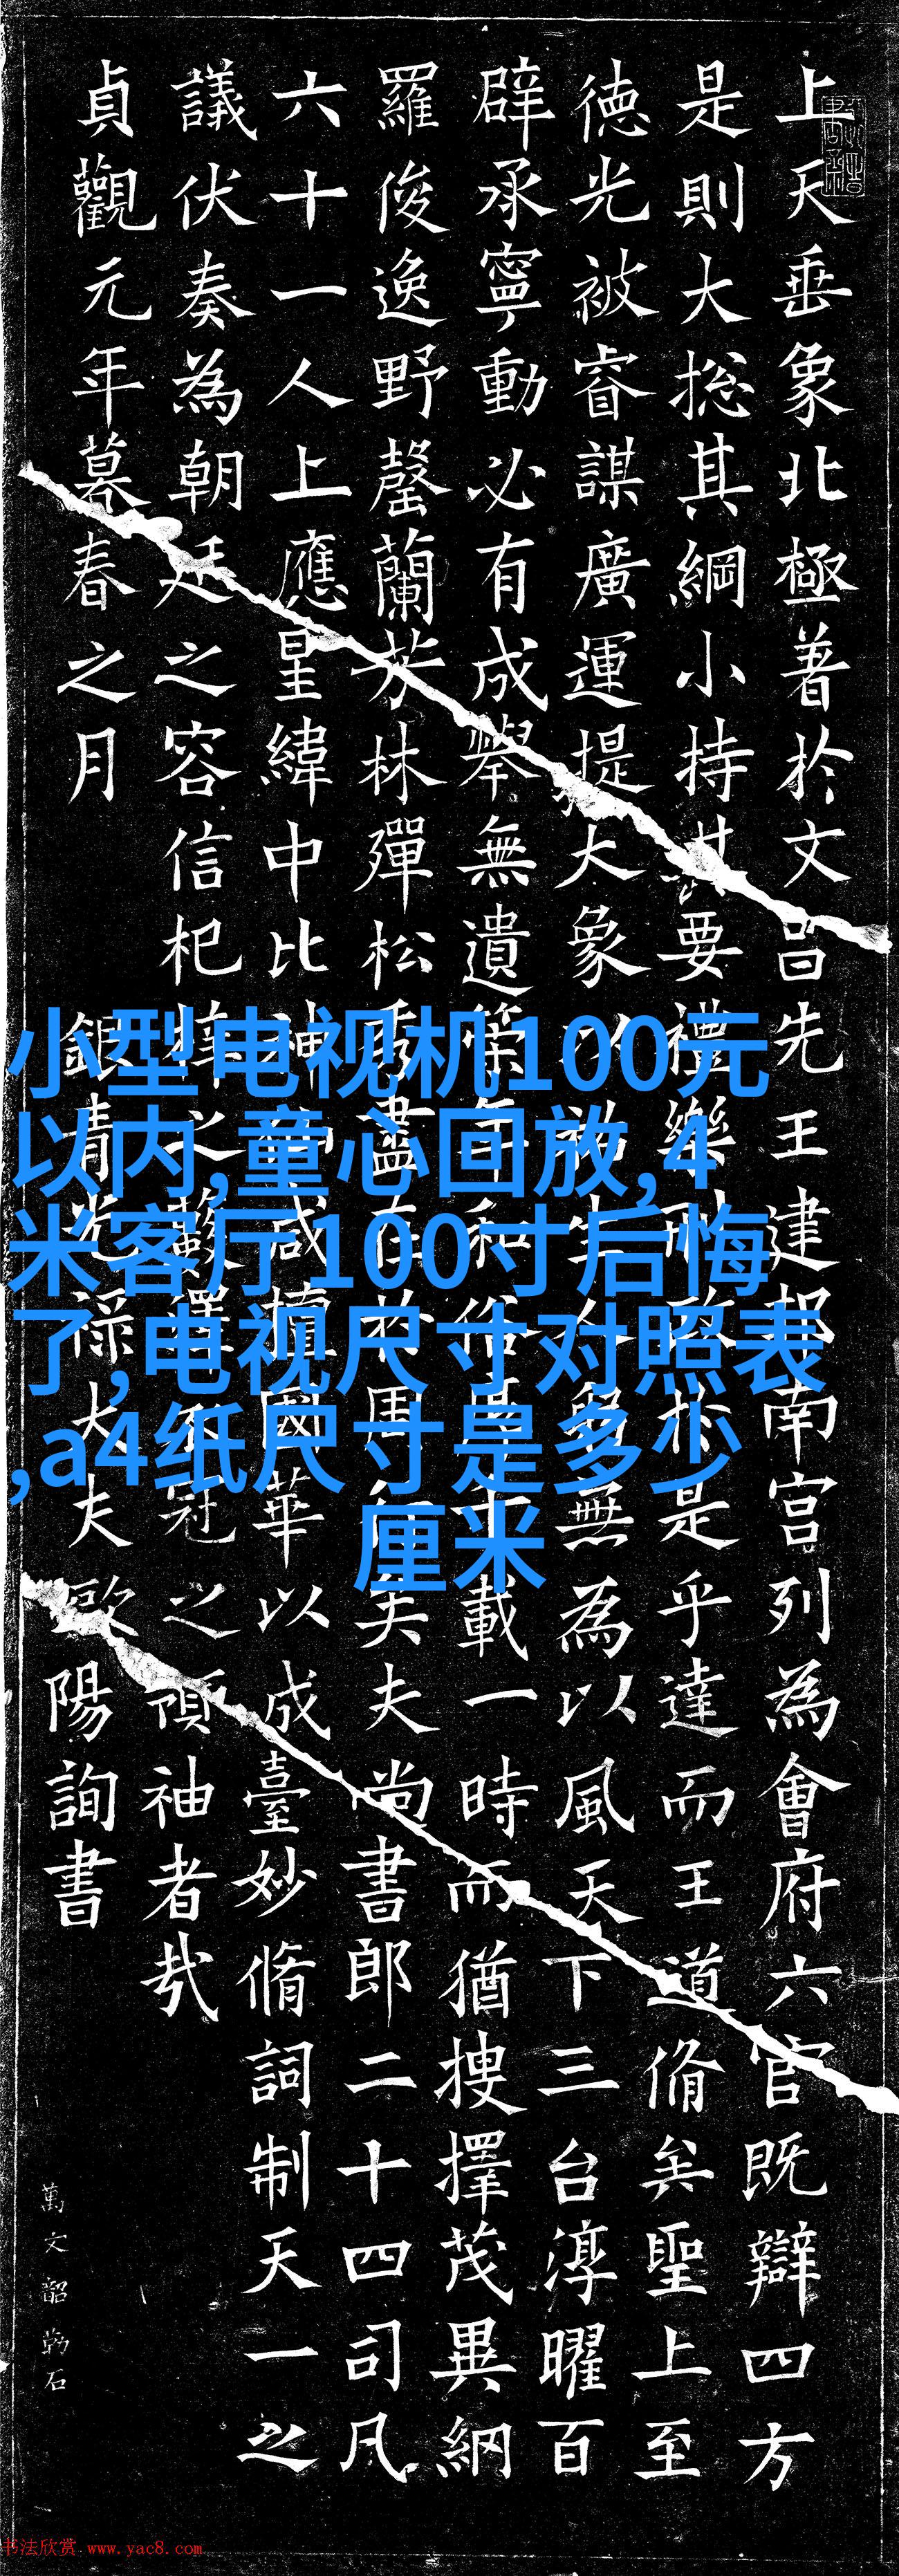 上天垂象北極著於文昌先王建邦南宮列為會府六官既辯四方
是則大揔其綱小持其要禮樂刑政於是乎達而王道脩矣聖上至
德光被睿謀廣運提大象以祐生人躬無為以風天下三台淳曜百
辟承寧動必有成舉無遺策年和俗厚千載一時而猶搜擇茂異網
羅俊逸野罄蘭芳林彈松秀盡在於周行矣夫尚書郎二十四司凡
六十一人上應星緯中比神仙咸擅國華以成臺妙脩詞制天一之
議伏奏為朝廷之容信杞梓之藪澤衣冠之領袖者哉
貞觀元年暮春之月 銀青光祿大夫歐陽詢書
萬文韶勒石
小型电视机100元
以内,童心回放,4
米客厅100寸后悔
了,电视尺寸对照表
,a4纸尺寸是多少
厘米
书法欣赏 www.yac8.com